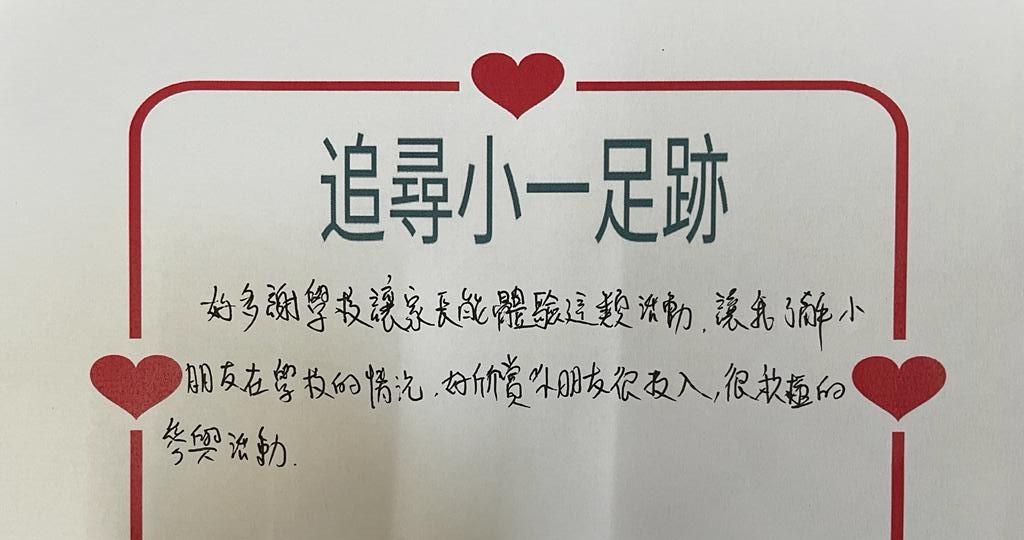 追尋小一足跡
好多謝學校讓家長能體驗這類活動，讓我了解小
朋友在學校的情況，好欣賞小朋友很投入，很積極的
參與活動.